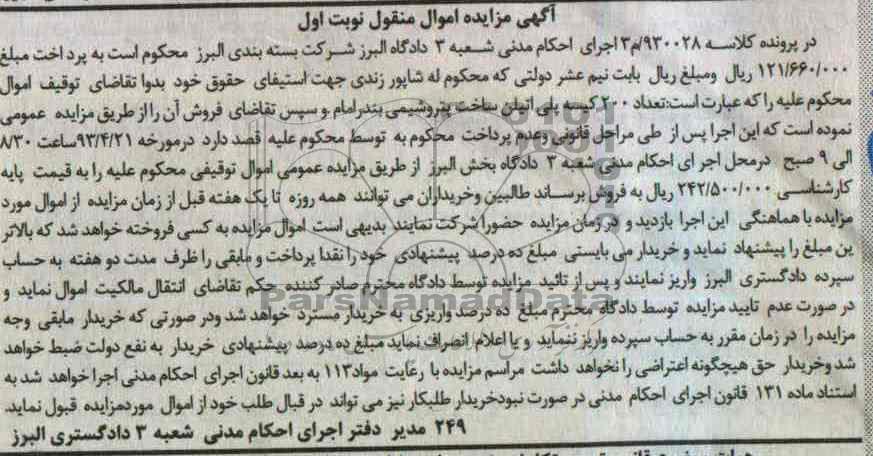 آگهی مزایده اموال منقول نوبت اول
در پرونده کلاسه ۹۳۰۰۲۸/م۳ اجرای احکام مدنی شعبه ۳ دادگاه البرز شرکت بسته بندی البرز محکوم است به پرداخت مبلغ
۱۲۱/۶۶۰/۰۰۰ ریال ومبلغ ریال بابت نیم عشر دولتی که محکوم له شاپور زندی جهت استیفای حقوق خود بدوا تقاضای توقیف اموال
محکوم علیه را که عبارت است:تعداد ۲۰۰ کیسه پلی اتیلن ساخت پتروشیمی بندرامام و سپس تقاضای فروش آن را از طریق مزایده عمومی
نموده است که این اجرا پس از طی مراحل قانونی وعدم پرداخت محکوم به توسط محکوم علیه قصد دارد درمورخه ۹۳/۴/۲۱ساعت ۸/۳۰
الی ۹ صبح درمحل اجر ای احکام مدنی شعبه ۳ دادگاه بخش البرز از طریق مزایده عمومی اموال توقیفی محکوم علیه را به قیمت پایه
کارشناسی ۲۴۲/۵۰۰/۰۰۰ ریال به فروش برساند طالبین وخریداران می توانند همه روزه تا یک هفته قبل از زمان مزایده از اموال مورد
مزایده با هماهنگی این اجرا بازدید و در زمان مزایده حضورا شرکت نمایند بدیهی است اموال مزایده به کسی فروخته خواهد شد که بالاتر
ین مبلغ را پیشنهاد نماید و خریدار می بایستی مبلغ ده درصد پیشنهادی خود را نقدا پرداخت و مابقی را ظرف مدت دو هفته به حساب
سپرده دادگستری البرز واریز نمایند و پس از تائید مزایده توسط دادگاه محترم صادر کننده حکم تقاضای انتقال مالکیت اموال نماید و
در صورت عدم تایید مزایده توسط دادگاه محترم مبلغ ده درصد واریزی به خریدار مسترد خواهد شد ودر صورتی که خریدار مابقی وجه
مزایده را در زمان مقرر به حساب سپرده واریز ننماید و یا اعلام انصراف نماید مبلغ ده درصد پیشنهادی خریدار به نفع دولت ضبط خواهد
شد وخریدار حق هیچگونه اعتراضی را نخواهد داشت مراسم مزایده با رعایت مواد۱۱۳ به بعد قانون اجرای احکام مدنی اجرا خواهد شد به
استناد ماده ۱۳۱ قانون اجرای احکام مدنی در صورت نبودخریدار طلبکار نیز می تواند در قبال طلب خود از اموال موردمزایده قبول نماید.
۲۴۹ مدیر دفتر اجرای احکام مدنی شعبه ۳ دادگستری البرز
ParsNamadData